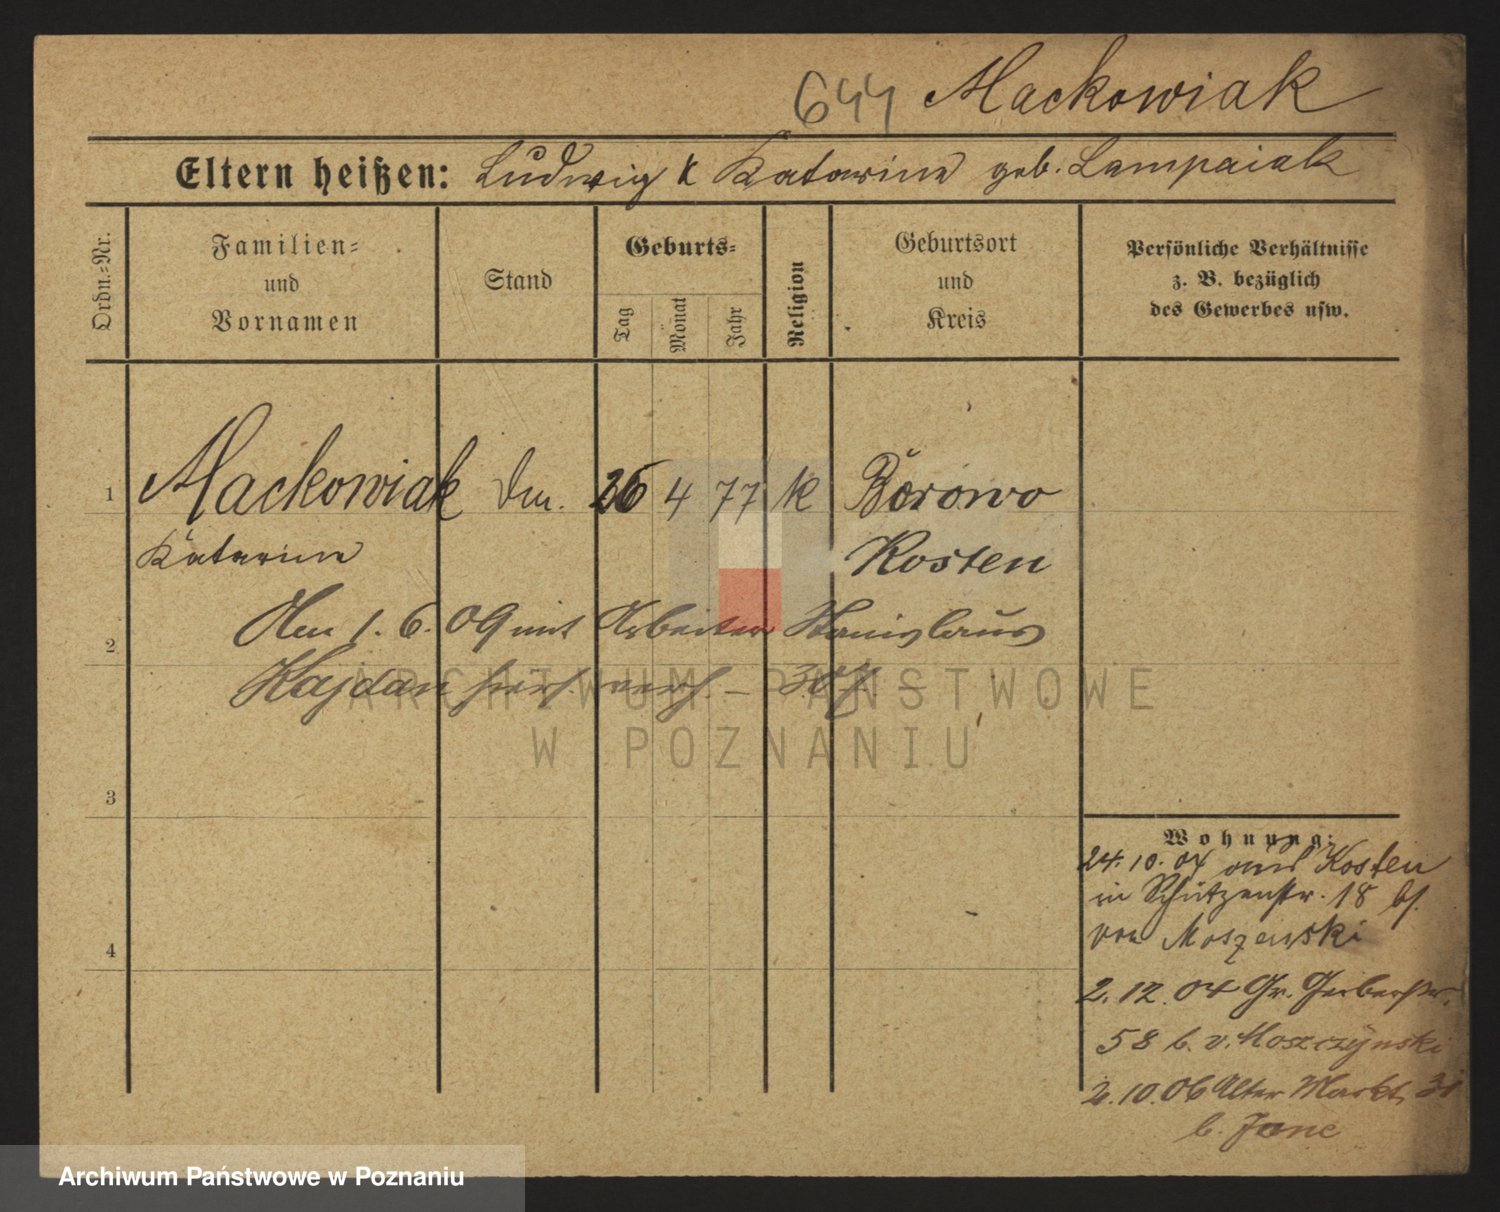 644 Mackowiak
Eltern heißen: Ludwig & Katarina geb. Lampaiak
Ordn.-Nr.
Familien-
und
Vornamen
Stand
Geburts-
Tag
Monat
Jahr
Religion
Geburtsort
und
Kreis
Persönliche Verhältnisse
z. B. bezüglich
des Gewerbes usw.
1 Mackowiak 26 4 77 k Borowo
Katarina Kosten
Den 1. 6. 09 mit Arbeiter Stanislaus
2
Kajdan verh.
ARCHIWUM PAŃSTWOWE
W POZNANIU
3
Wohnung:
24. 10. 04 aus Kosten
in Schützenstr. 18 bs.
von Moszewski
4
2. 12. 04 Gr. Gerberstr.
58 b. v. Moszczynski
2. 10. 06 Alter Markt
b. Jane
Archiwum Państwowe w Poznaniu